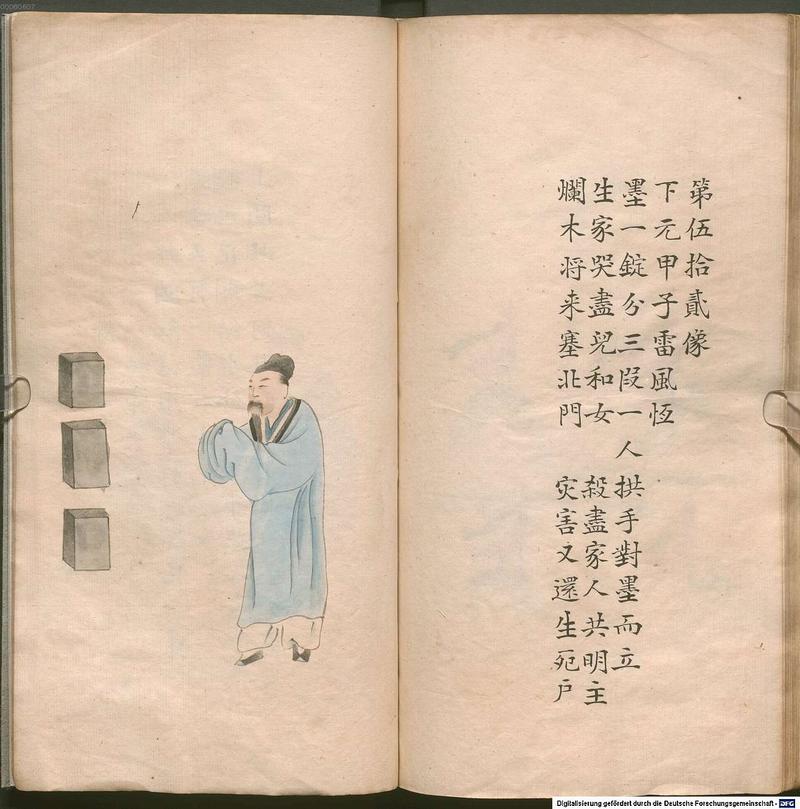 第伍拾貳像
下元甲子雷風恆
墨一錠分三段一人拱手對墨而立
生家哭盡兒和女 殺盡家人共明主
爛木将来塞北門 灾害又還生死户
00060607
Digitalisierung gefördert durch die Deutsche Forschungsgemeinschaft - DFG